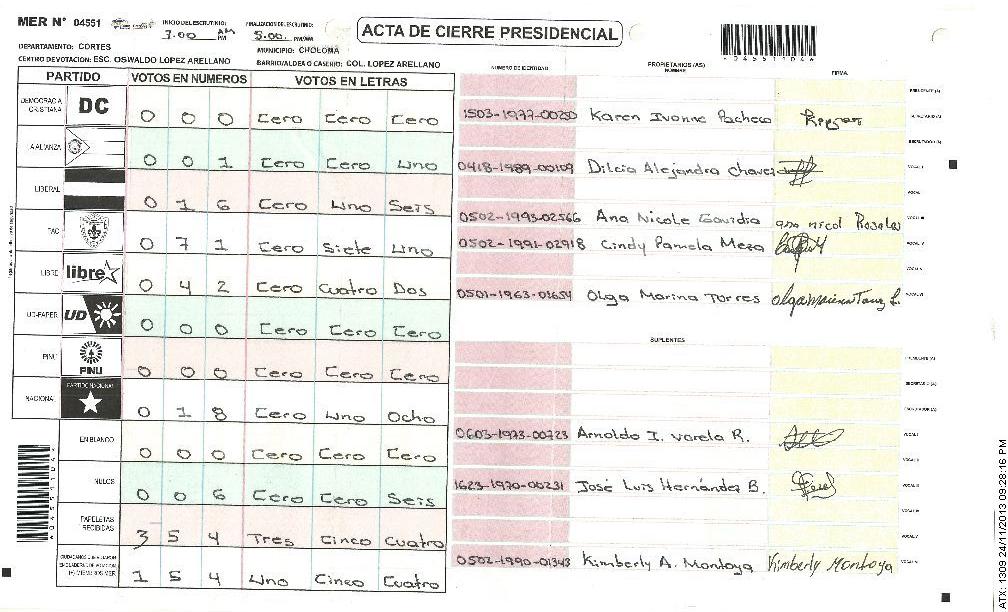 MER N° 04551
INICIO DEL ESCRUTINIO: 7:00 AM PM
FINALIZACION DEL ESCRUTINIO: 5:00 PM/AM
ACTA DE CIERRE PRESIDENCIAL
DEPARTAMENTO: CORTES
MUNICIPIO: CHOLOMA
CENTRO DE VOTACION: ESC. OSWALDO LOPEZ ARELLANO
BARRIO/ALDEA O CASERIO: COL. LOPEZ ARELLANO
PARTIDO VOTOS EN NUMEROS VOTOS EN LETRAS
DEMOCRACIA CRISTIANA DC 0 0 0 Cero Cero Cero
A ALIANZA 0 0 1 Cero Cero Uno
LIBERAL 0 1 6 Cero Uno Seis
PAC 0 7 1 Cero Siete Uno
LIBRE libre 0 4 2 Cero Cuatro Dos
UD-FAPER UD 0 0 0 Cero Cero Cero
PINU PINU 0 0 0 Cero Cero Cero
NACIONAL PARTIDO NACIONAL 0 1 8 Cero Uno Ocho
EN BLANCO 0 0 0 Cero Cero Cero
NULOS 0 0 6 Cero Cero Seis
PAPELETAS RECIBIDAS 3 5 4 Tres Cinco Cuatro
CIUDADANOS QUE VOTARON
(+) MIEMBROS MER 1 5 4 Uno Cinco Cuatro
NUMERO DE IDENTIDAD PROPIETARIOS (AS) NOMBRE FIRMA
PRESIDENTE (A)
1503-1977-00250 Karen Ivonne Pacheco SECRETARIO (A)
ESCRUTADOR (A)
0418-1989-00109 Dilcia Alejandra Chavez VOCAL I
0502-1993-02566 Ana Nicole Gavidia ana nicol Rosales VOCAL III
0502-1991-02918 Cindy Pamela Meza
0501-1963-01654 Olga Marina Torres Olga Marina Torres L. VOCAL VI
SUPLENTES
PRESIDENTE (A)
SECRETARIO (A)
ESCRUTADOR (A)
0603-1973-00723 Arnoldo I. Varela R. VOCAL I
1623-1970-00231 José Luis Hernández B.
0502-1990-01343 Kimberly A. Montoya Kimberly Montoya
ATX: 1309 24/11/2013 09:28:16 PM